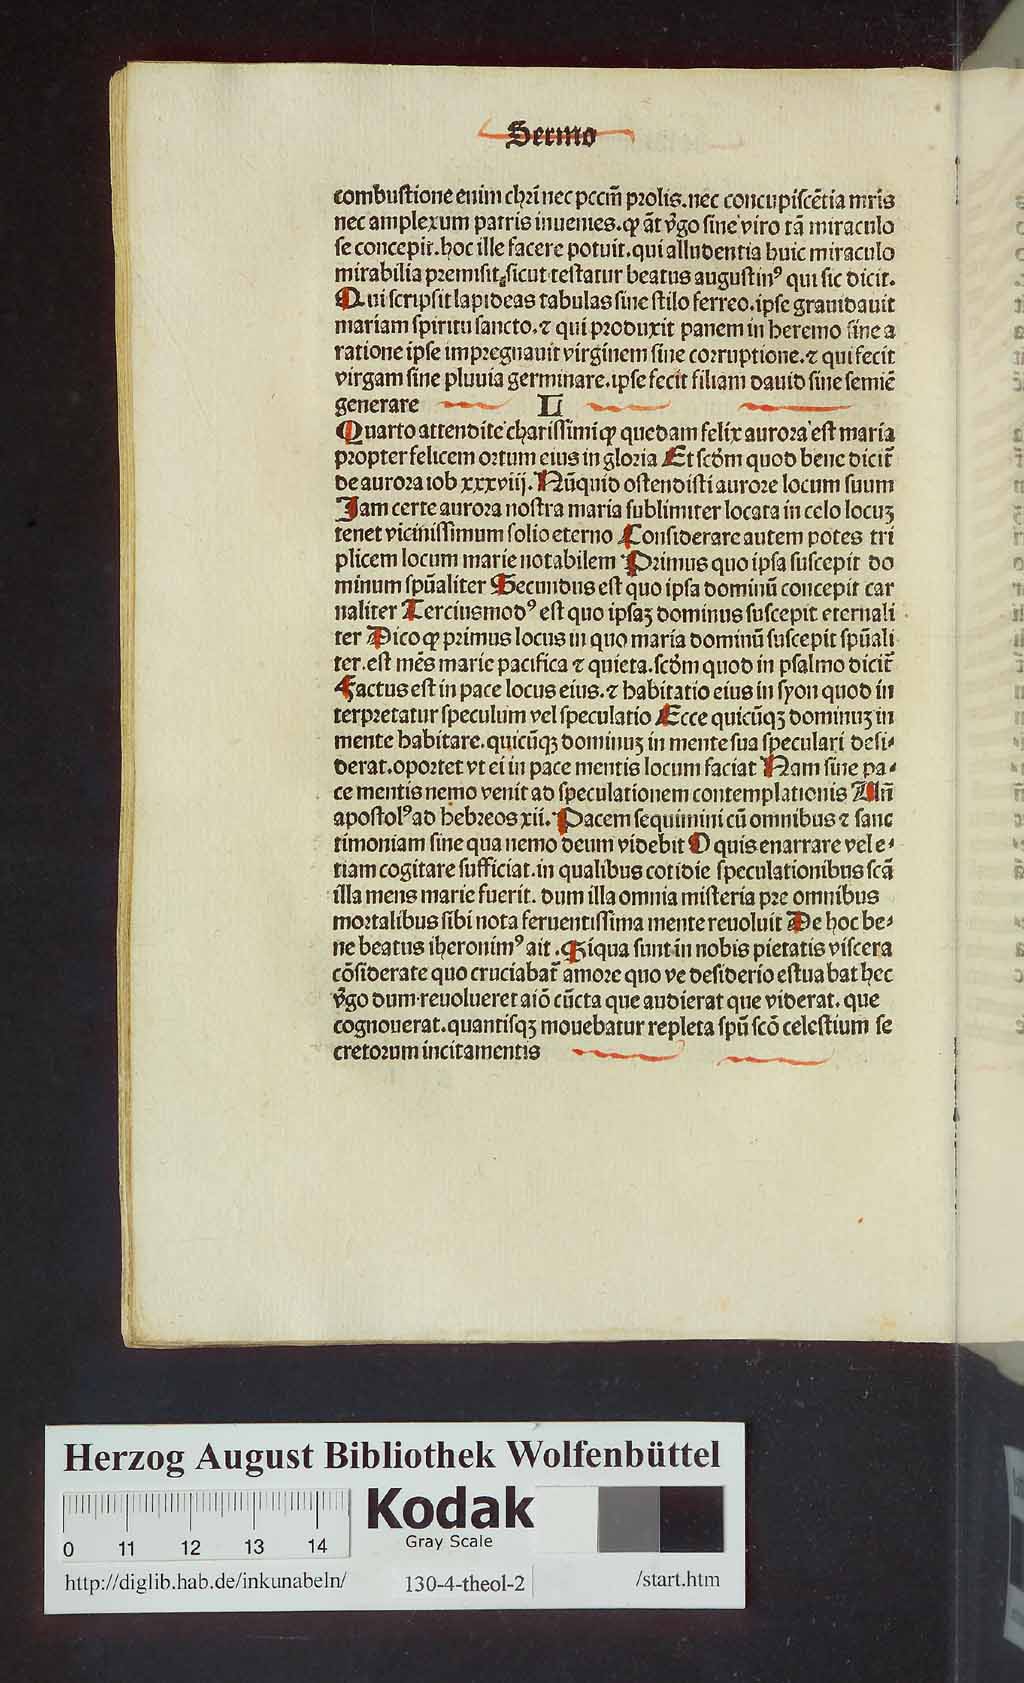 Sermo
combustione enim chr̄i nec pccm̄ prolis. nec concupiscētia mr̄is
nec amplexum patris inuenies. ꝙ āt v̄go sine viro tā miraculo
se concepit. hoc ille facere potuit. qui alludentia huic miraculo
mirabilia premisit, sicut testatur beatus augustinꝰ qui sic dicit.
Qui scripsit lapideas tabulas sine stilo ferreo. ipse grauidauit
mariam spiritu sancto. ⁊ qui produxit panem in heremo sine a
ratione ipse impregnauit virginem sine corruptione. ⁊ qui fecit
virgam sine pluuia germinare. ipse fecit filiam dauid sine semiē
generare L
Quarto attendite charissimi ꝙ quedam felix aurora est maria
propter felicem ortum eius in gloria Et scd̄m quod bene dicit̄
de aurora iob xxxviij. Nūquid ostendisti aurore locum suum
Jam certe aurora nostra maria sublimiter locata in celo locuꝫ
tenet vicinissimum solio eterno Considerare autem potes tri
plicem locum marie notabilem Primus quo ipsa suscepit do
minum spūaliter Secundus est quo ipsa dominū concepit car
naliter Tercius modꝰ est quo ipsaꝫ dominus suscepit eternali
ter Dico ꝙ primus locus in quo maria dominū suscepit spūali
ter. est mēs marie pacifica ⁊ quieta. scd̄m quod in psalmo dicit̄
Factus est in pace locus eius. ⁊ habitatio eius in syon quod in
terpretatur speculum vel speculatio Ecce quicūqꝫ dominuꝫ in
mente habitare. quicūqꝫ dominuꝫ in mente sua speculari desi⸗
derat. oportet vt ei in pace mentis locum faciat Nam sine pa⸗
ce mentis nemo venit ad speculationem contemplationis Un̄
apostolꝰ ad hebreos xii. Pacem sequimini cū omnibus ⁊ sanc
timoniam sine qua nemo deum videbit O quis enarrare vel e⸗
tiam cogitare sufficiat. in qualibus cotidie speculationibus scā
illa mens marie fuerit. dum illa omnia misteria pre omnibus
mortalibus sibi nota feruentissima mente reuoluit De hoc be⸗
ne beatus iheronimꝰ ait. Siqua sunt in nobis pietatis viscera
cōsiderate quo cruciabat̄ amore quo ve desiderio estuabat hec
v̄go dum reuolueret aīo cūcta que audierat que viderat. que
cognouerat. quantisqꝫ mouebatur repleta spū scō celestium se
cretorum incitamentis
Herzog August Bibliothek Wolfenbüttel
Kodak
Gray Scale
0 11 12 13 14
http://diglib.hab.de/inkunabeln/ 130-4-theol-2 /start.htm